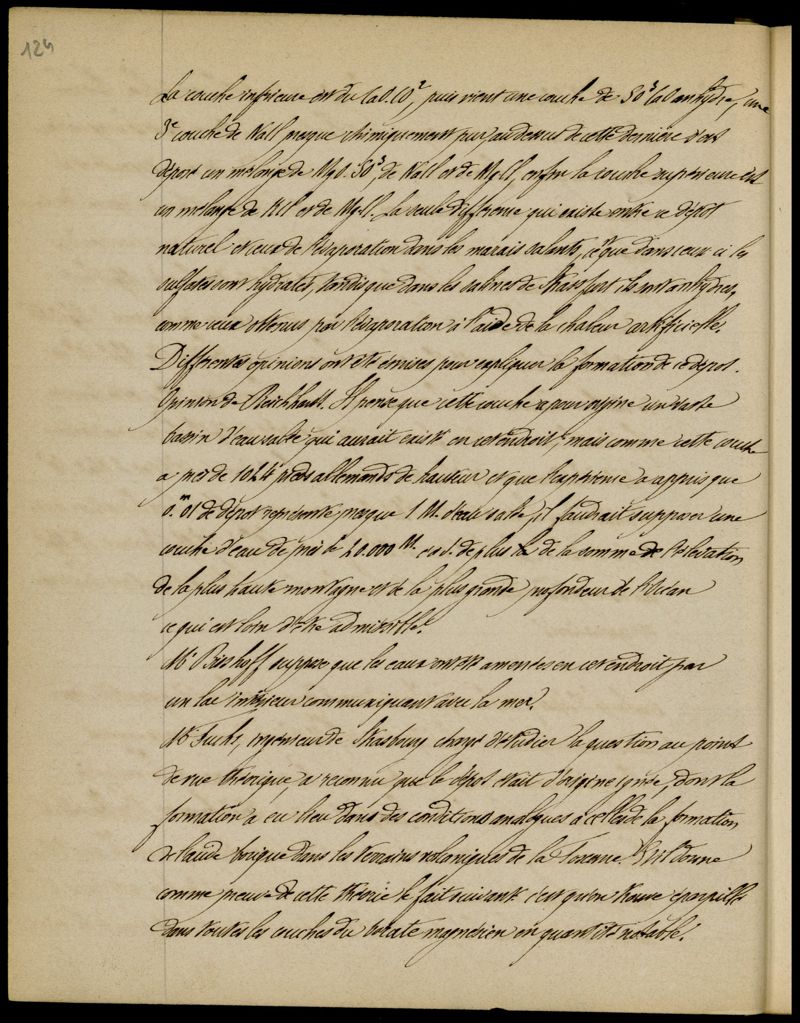 124
La couche inférieure est du CaO.CO², puis vient une couche de SO³CaO anhydre, une
3e couche de NaCl presque chimiquement pur, au dessus de cette dernière s'est
déposé un mélange de MgO.SO³, de NaCl et de MgCl, enfin la couche supérieure est
un mélange de KCl et de MgCl. La seule différence qui existe entre ce dépôt
naturel et ceux de l'évaporation dans les marais salants, c'est que dans ceux ci les
sulfates sont hydratés, tandis que dans les salines de Strassfurt ils sont anhydres,
comme ceux obtenus par l'évaporation à l'aide de la chaleur artificielle.
Différentes opinions ont été émises pour expliquer la formation de ce dépot.
Opinion de Reichhardt. Il pense que cette couche a pour origine un vaste
bassin d'eau salée qui aurait existé en cet endroit, mais comme cette couche
a près de 1024 pieds allemands de hauteur et que l'expérience a appris que
0.m01 de dépot représente presque 1 M. d'eau salée, il faudrait supposer une
couche d'eau de près de 20.000 M. c.a.d. de plus de la somme de l'élévation
de la plus haute montagne et de la plus grande profondeur de l'Océan
ce qui est loin d'être admissible.
Mr Bischoff suppose que les eaux ont été amenées en cet endroit par
un lac intérieur communiquant avec la mer.
Mr Fuchs, ingénieur de Strasbourg chargé d'étudier la question au point
de vue théorique, a reconnu que le dépot était d'origine ignée, dont la
formation a eu lieu dans des conditions analogues à celle de la formation
de l'acide borique dans les terrains volcaniques de la Toscane. Il donne
comme preuve de cette théorie le fait suivant c'est qu'on trouve éparpillé
dans toutes les couches du borate magnésien en quantité notable.